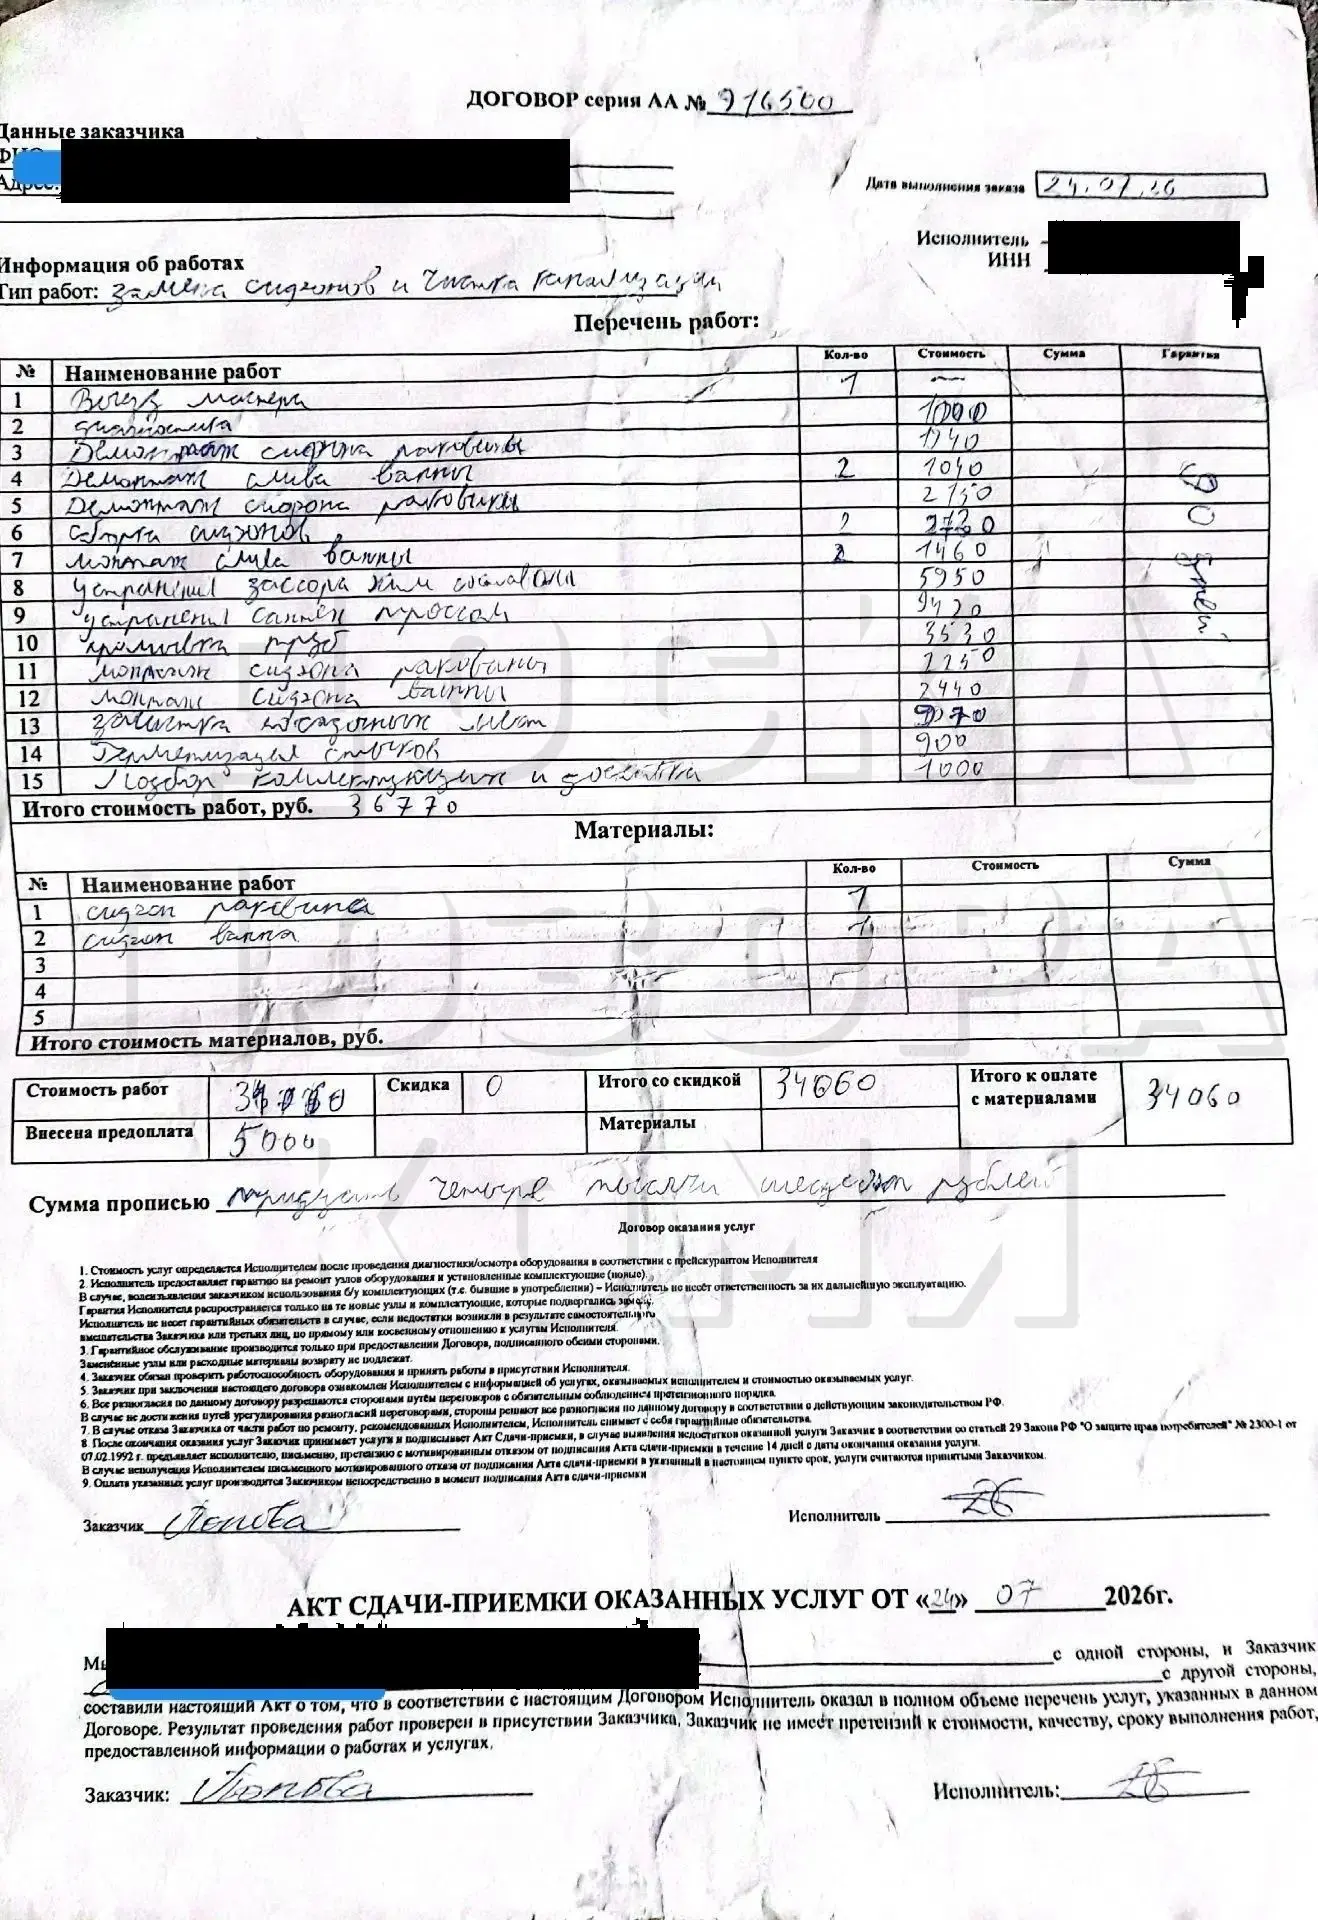 ДОГОВОР серия АА № 916500
Данные заказчика
ФИО
Адрес:
Дата выполнения заказа 24.07.26
Исполнитель
ИНН
Информация об работах
Тип работ: замена сифонов и чистка канализации
Перечень работ:
№ Наименование работ Кол-во Стоимость Сумма Гарантия
1 Выезд мастера 1 —
2 диагностика 1000
3 Демонтаж сифона раковины 1740
4 Демонтаж слива ванны 2 1040
5 Демонтаж сифона раковины 2150
6 сборка сифонов 2
7 монтаж слива ванны 2 1460
8 устранения зассора хим составом 5950
9 устранения тросом 9420
10 промывка труб 3530
11 монтаж сифона раковины 2250
12 монтаж сифона ванны 2440
13 зачистка посадочных мест
14 Герметизация стыков 900
15 Подбор комплектующих и доставка 1000
90 дней
Итого стоимость работ, руб. 36770
Материалы:
№ Наименование работ Кол-во Стоимость Сумма
1 сифон раковина 1
2 сифон ванна 1
3
4
5
Итого стоимость материалов, руб.
Стоимость работ Скидка 0 Итого со скидкой 34060 Итого к оплате с материалами 34060
Внесена предоплата 5000 Материалы
Сумма прописью тридцать четыре тысячи шесдесят рублей
Договор оказания услуг
1. Стоимость услуг определяется Исполнителем после проведения диагностики/осмотра оборудования в соответствии с прейскурантом Исполнителя
2. Исполнитель предоставляет гарантию на ремонт узлов оборудования и установленные комплектующие (новые).
В случае, волеизъявления заказчиком использования б/у комплектующих (т.е. бывшие в употреблении) – Исполнитель не несёт ответственность за их дальнейшую эксплуатацию.
Гарантия Исполнителя распространяется только на те новые узлы и комплектующие, которые подвергались замене.
Исполнитель не несет гарантийных обязательств в случае, если недостатки возникли в результате самостоятельного
вмешательства Заказчика или третьих лиц, по прямому или косвенному отношению к услугам Исполнителя.
3. Гарантийное обслуживание производится только при предоставлении Договора, подписанного обеими сторонами.
Заменённые узлы или расходные материалы возврату не подлежат.
4. Заказчик обязан проверить работоспособность оборудования и принять работы в присутствии Исполнителя.
5. Заказчик при заключении настоящего договора ознакомлен Исполнителем с информацией об услугах, оказываемых исполнителем и стоимостью оказываемых услуг.
6. Все разногласия по данному договору разрешаются сторонами путём переговоров с обязательным соблюдением претензионного порядка.
В случае не достижения путей урегулирования разногласий переговорами, стороны решают все разногласия по данному договору в соответствии с действующим законодательством РФ.
7. В случае отказа Заказчика от части работ по ремонту, рекомендованных Исполнителем, Исполнитель снимает с себя гарантийные обязательства.
8. После окончания оказания услуг Заказчик принимает услуги и подписывает Акт Сдачи-приемки, в случае выявления недостатков оказанной услуги Заказчик в соответствии со статьей 29 Закона РФ "О защите прав потребителей" № 2300-1 от
07.02.1992 г. предъявляет исполнителю, письменно, претензию с мотивированным отказом от подписания Акта сдачи-приемки в течение 14 дней с даты окончания оказания услуги.
В случае неполучения Исполнителем письменного мотивированного отказа от подписания Акта сдачи-приемки в указанный в настоящем пункте срок, услуги считаются принятыми Заказчиком.
9. Оплата указанных услуг производится Заказчиком непосредственно в момент подписания Акта сдачи-приемки
Заказчик Попова Исполнитель
АКТ СДАЧИ-ПРИЕМКИ ОКАЗАННЫХ УСЛУГ ОТ «24» 07 2026г.
Мы с одной стороны, и Заказчик
с другой стороны,
составили настоящий Акт о том, что в соответствии с настоящим Договором Исполнитель оказал в полном объеме перечень услуг, указанных в данном
Договоре. Результат проведения работ проверен в присутствии Заказчика, Заказчик не имеет претензий к стоимости, качеству, сроку выполнения работ,
предоставленной информации о работах и услугах.
Заказчик: Попова Исполнитель: